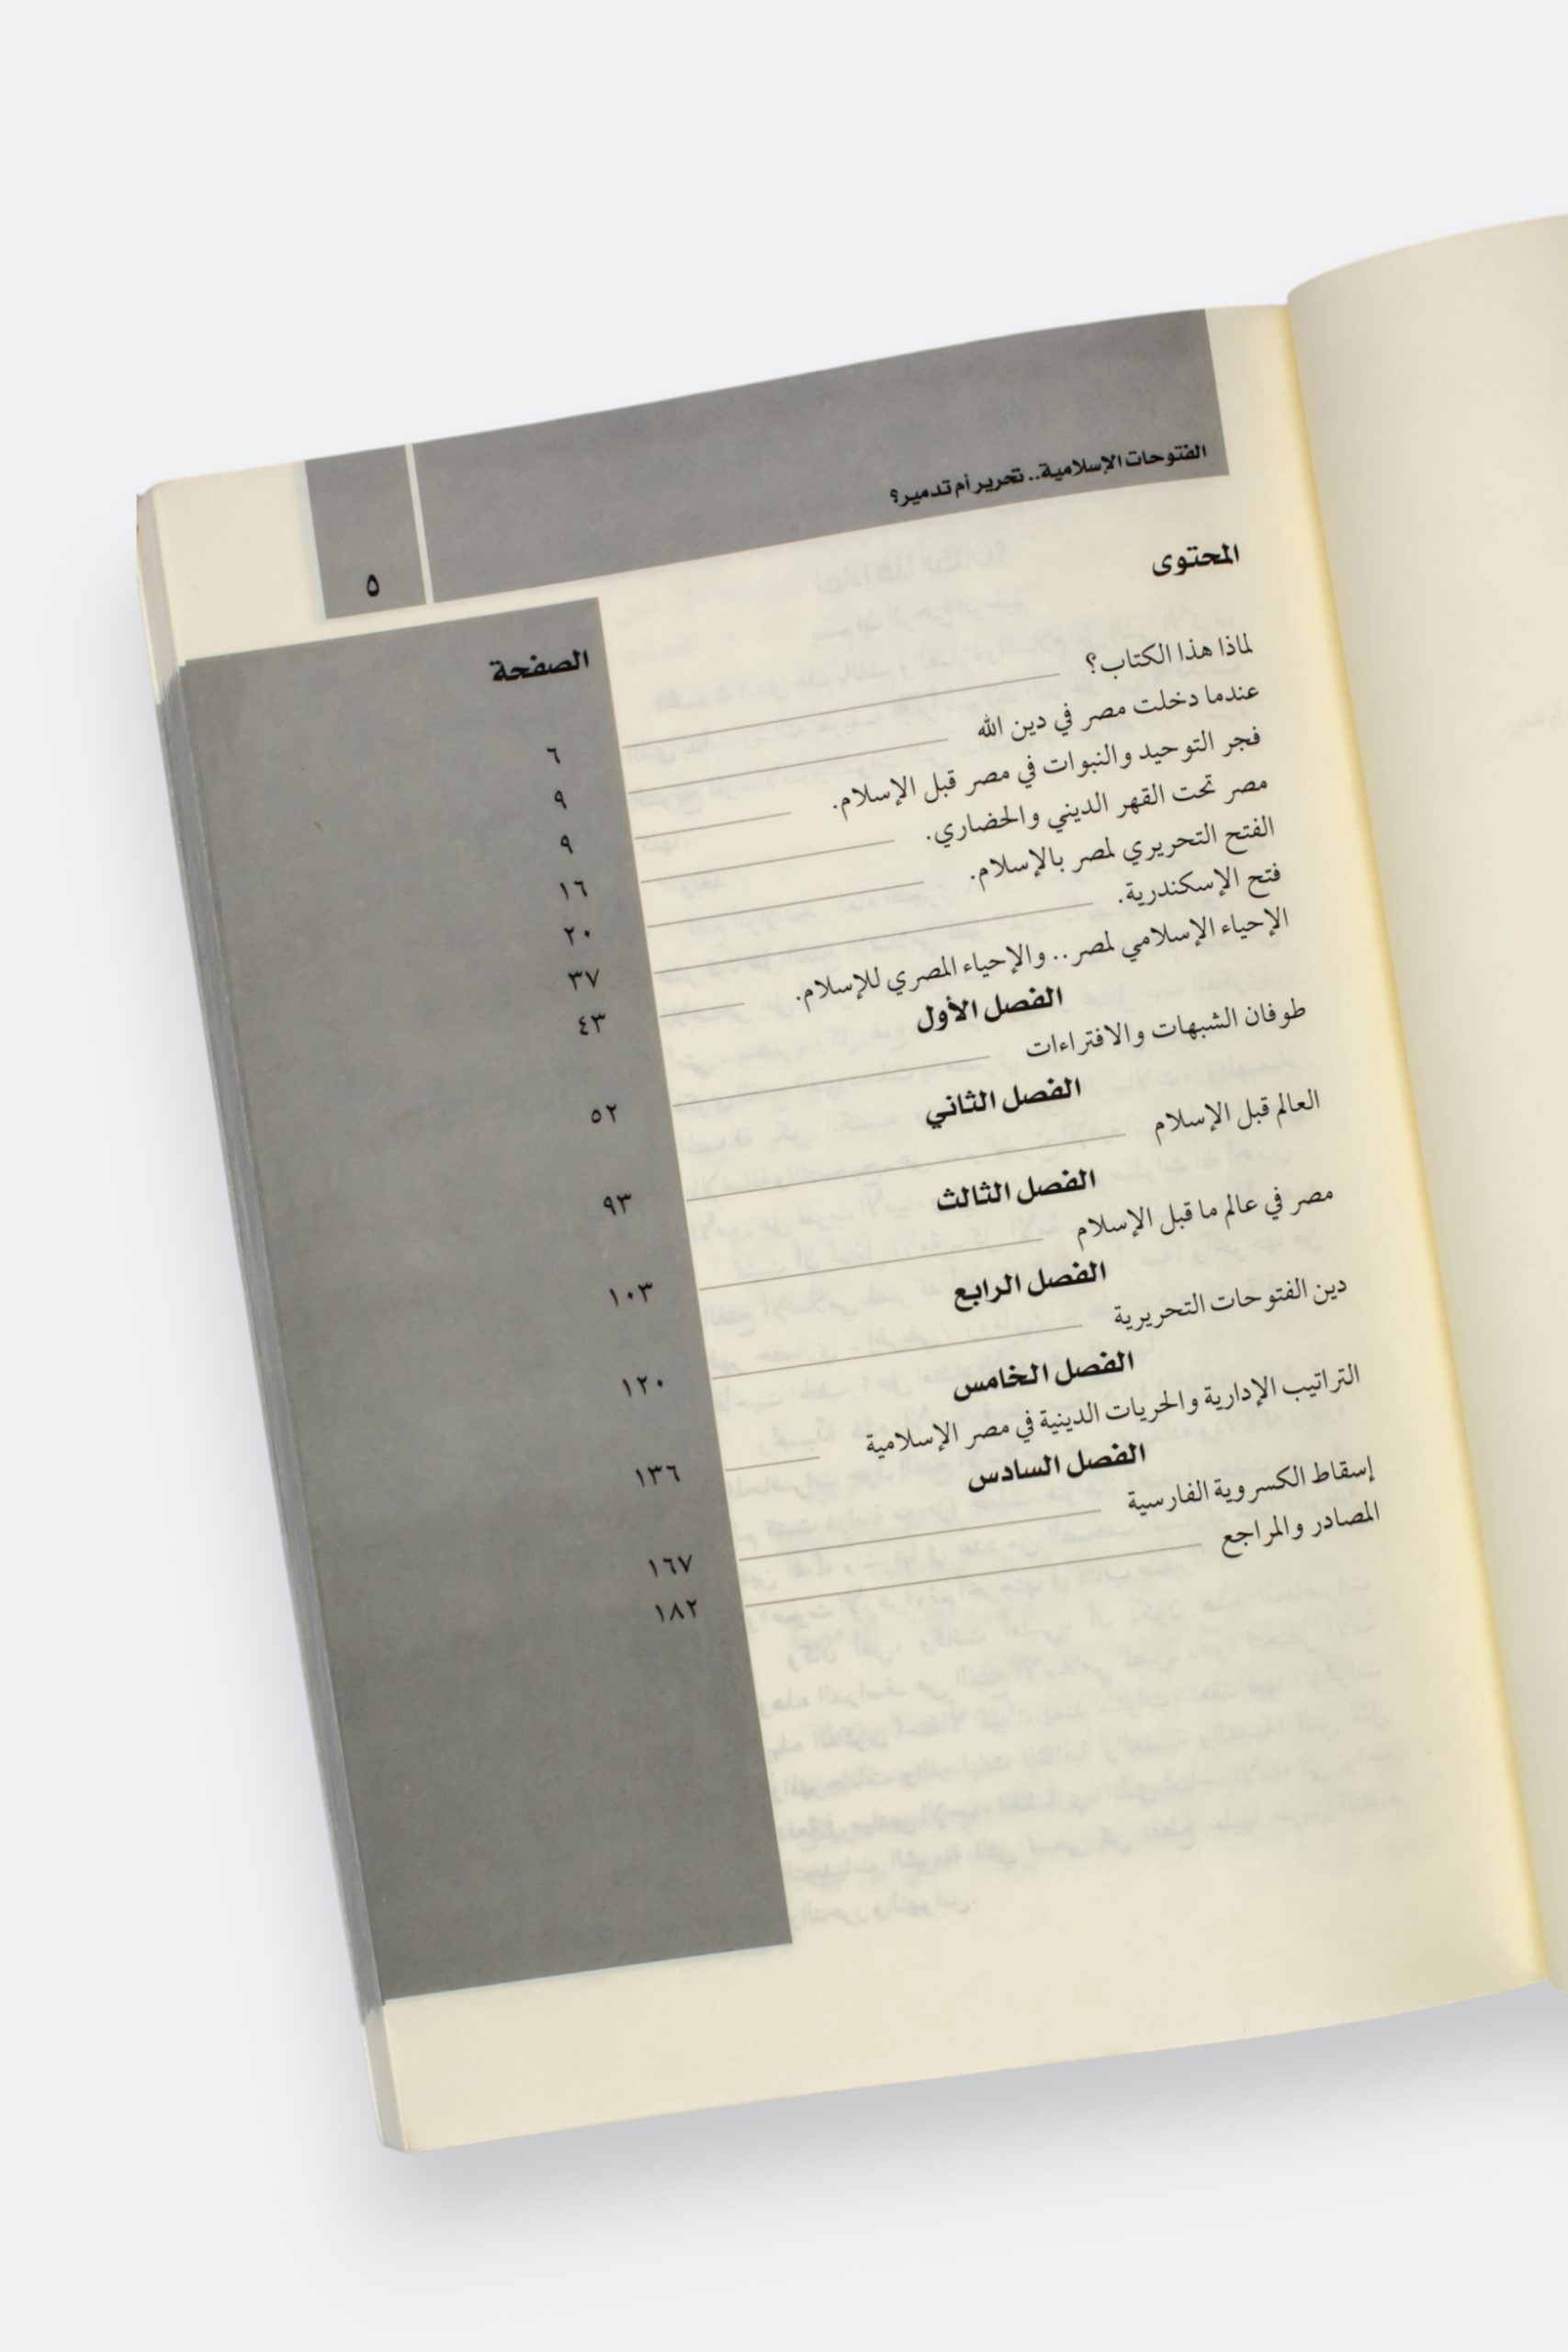 الفتوحات الإسلامية.. تحرير أم تدمير؟
٥
المحتوى
الصفحة
لماذا هذا الكتاب؟ ٦
عندما دخلت مصر في دين الله ٩
فجر التوحيد والنبوات في مصر قبل الإسلام. ٩
مصر تحت القهر الديني والحضاري. ١٦
الفتح التحريري لمصر بالإسلام. ٢٠
فتح الإسكندرية. ٣٧
الإحياء الإسلامي لمصر.. والإحياء المصري للإسلام. ٤٣
الفصل الأول
طوفان الشبهات والافتراءات ٥٢
الفصل الثاني
العالم قبل الإسلام ٩٣
الفصل الثالث
مصر في عالم ما قبل الإسلام ١٠٣
الفصل الرابع
دين الفتوحات التحريرية ١٢٠
الفصل الخامس
التراتيب الإدارية والحريات الدينية في مصر الإسلامية ١٣٦
الفصل السادس
إسقاط الكسروية الفارسية ١٦٧
المصادر والمراجع ١٨٢